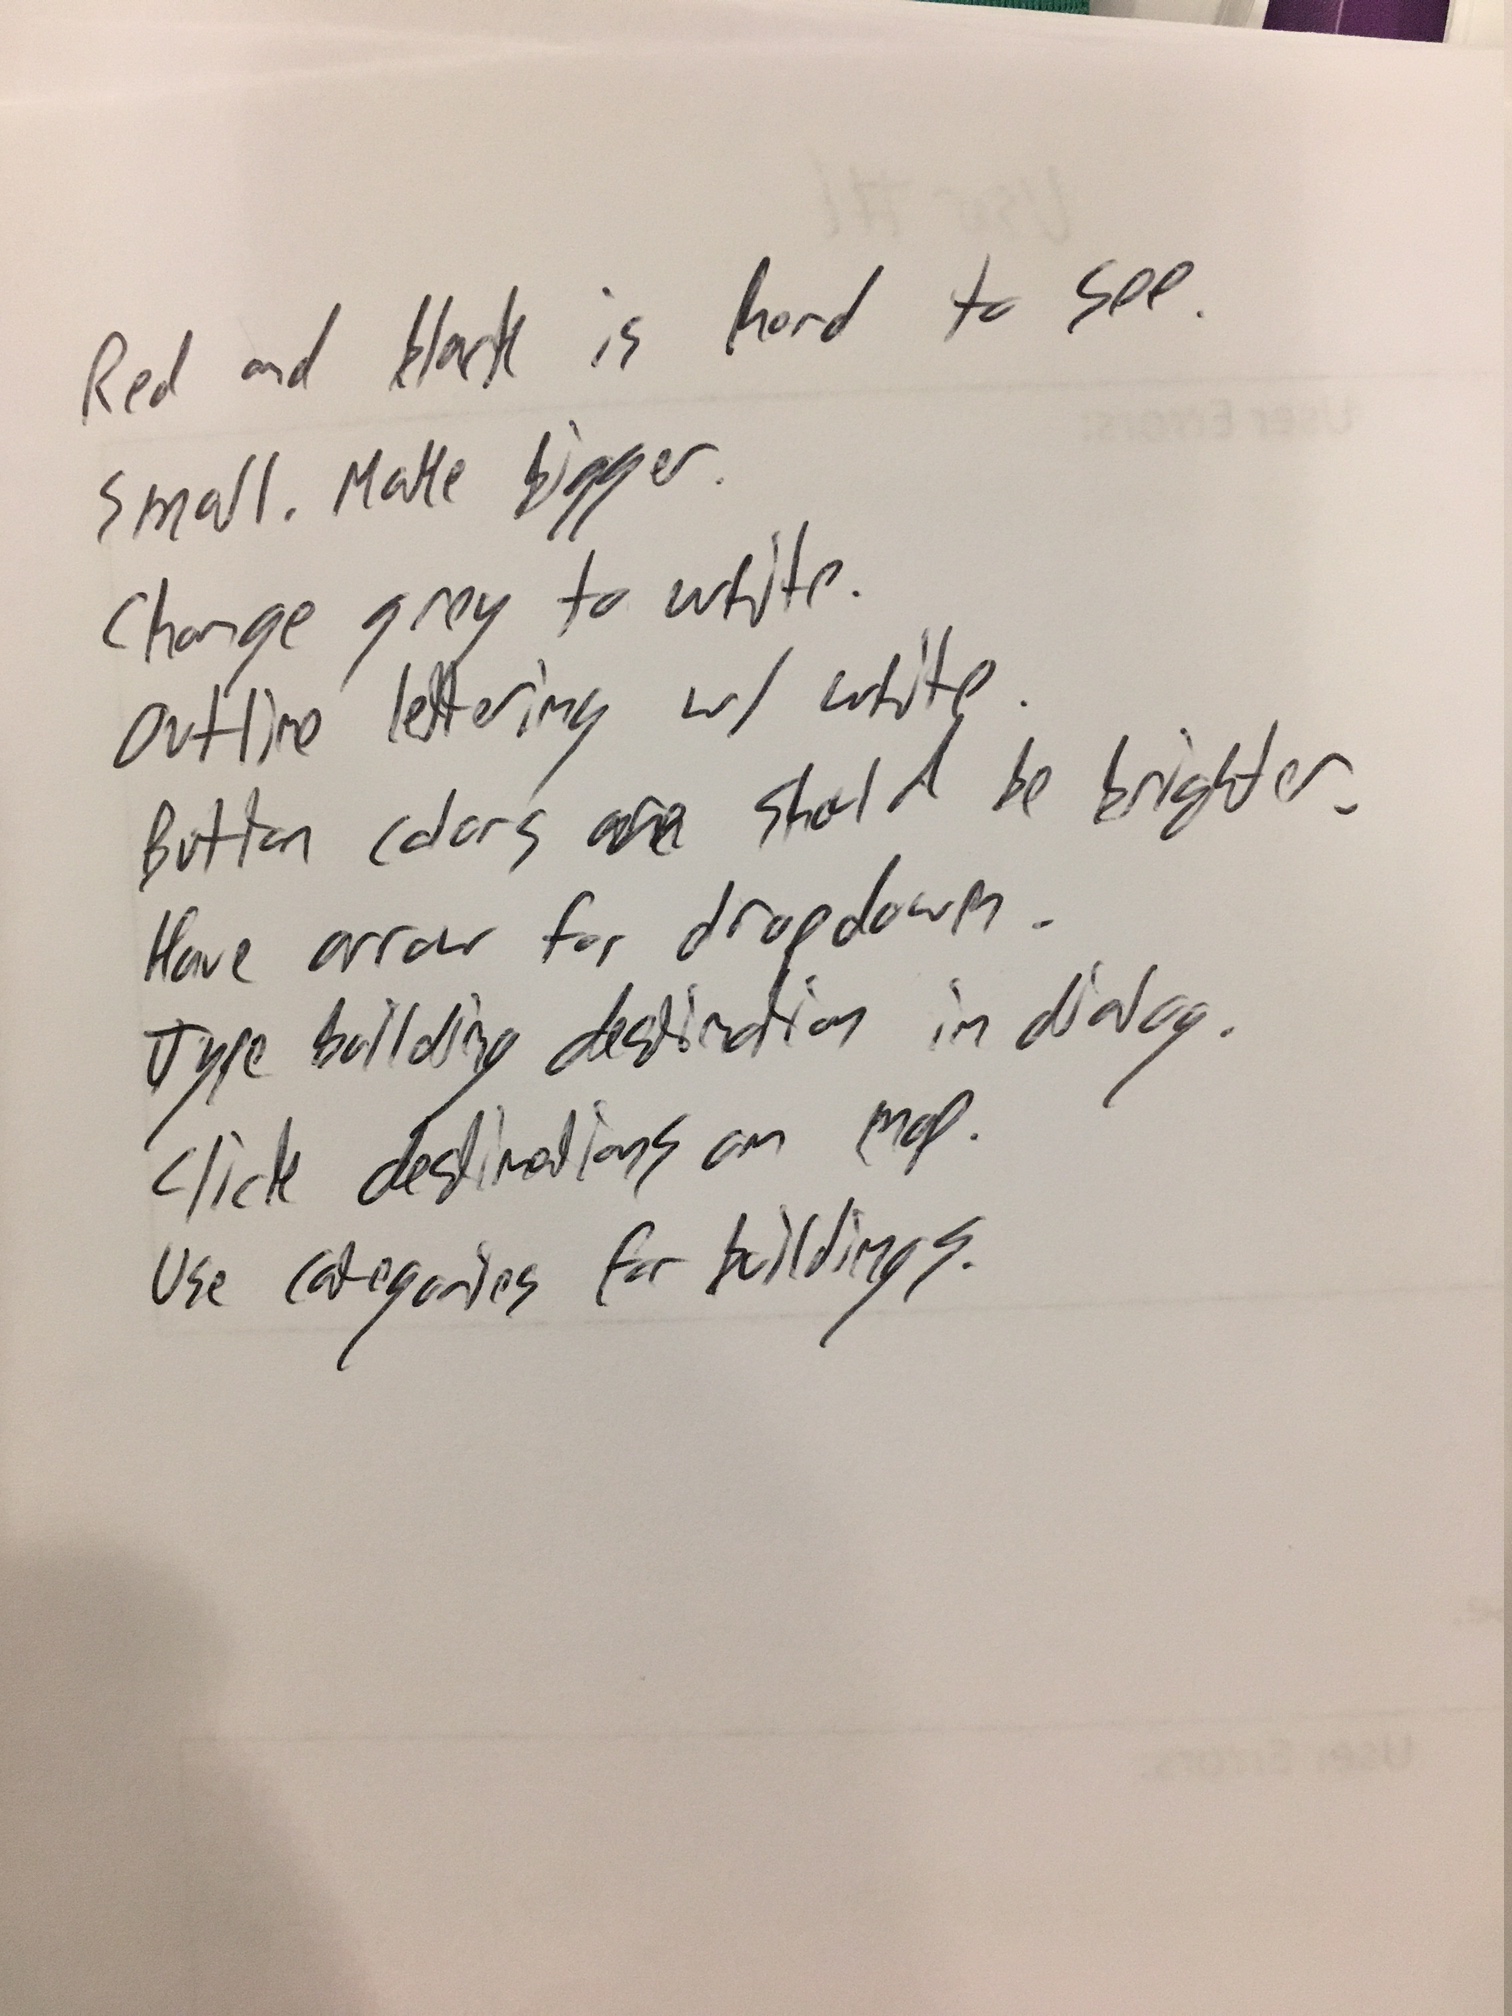 User #1
Red and black is hard to see.
User Errors:
Small. Make bigger.
Change grey to white.
Outline lettering w/ white.
Button colors are should be brighter.
Have arrow for dropdown.
Type building destination in dialog.
Click destinations on map.
Use categories for buildings.
User Errors: